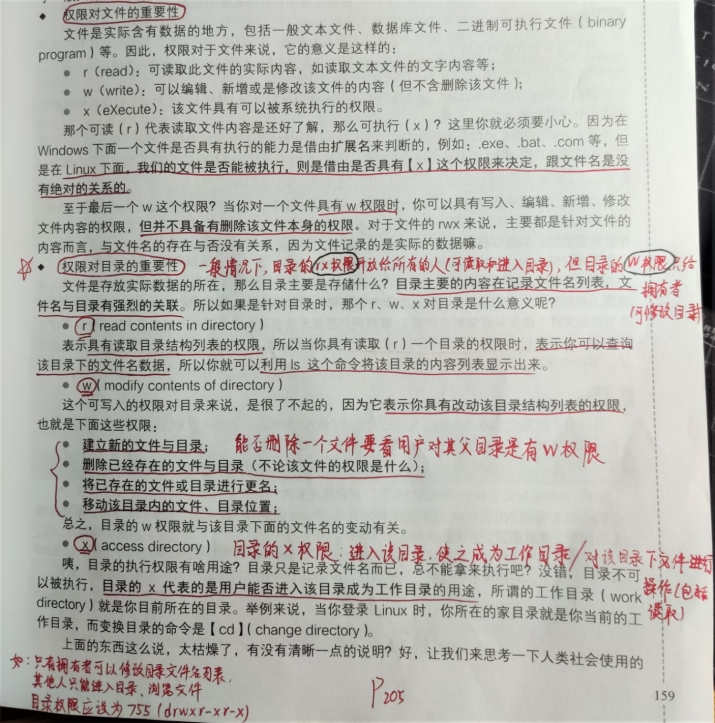 ◆ 权限对文件的重要性
文件是实际含有数据的地方，包括一般文本文件、数据库文件、二进制可执行文件（binary
program）等。因此，权限对于文件来说，它的意义是这样的：
● r（read）：可读取此文件的实际内容，如读取文本文件的文字内容等；
● w（write）：可以编辑、新增或是修改该文件的内容（但不含删除该文件）；
● x（eXecute）：该文件具有可以被系统执行的权限。
那个可读（r）代表读取文件内容是还好了解，那么可执行（x）？这里你就必须要小心。因为在
Windows 下面一个文件是否具有执行的能力是借由扩展名来判断的，例如：.exe、.bat、.com 等，但
是在 Linux 下面，我们的文件是否能被执行，则是借由是否具有【x】这个权限来决定，跟文件名是没
有绝对的关系的。
至于最后一个 w 这个权限？当你对一个文件具有 w 权限时，你可以具有写入、编辑、新增、修改
文件内容的权限，但并不具备有删除该文件本身的权限。对于文件的 rwx 来说，主要都是针对文件的
内容而言，与文件名的存在与否没有关系，因为文件记录的是实际的数据嘛。
☆ ◆ 权限对目录的重要性 一般情况下，目录的rx权限开放给所有的人（可读取和进入目录），但目录的w权限只给
文件是存放实际数据的所在，那么目录主要是存储什么？目录主要的内容在记录文件名列表，文 拥有者
件名与目录有强烈的关联。所以如果是针对目录时，那个 r、w、x 对目录是什么意义呢？ 可修改目录）
● r（read contents in directory）
表示具有读取目录结构列表的权限，所以当你具有读取（r）一个目录的权限时，表示你可以查询
该目录下的文件名数据，所以你就可以利用 ls 这个命令将该目录的内容列表显示出来。
● w（modify contents of directory）
这个可写入的权限对目录来说，是很了不起的，因为它表示你具有改动该目录结构列表的权限，
也就是下面这些权限：
● 建立新的文件与目录； 能否删除一个文件要看用户对其父目录是有w权限
● 删除已经存在的文件与目录（不论该文件的权限是什么）；
● 将已存在的文件或目录进行更名；
● 移动该目录内的文件、目录位置；
总之，目录的 w 权限就与该目录下面的文件名的变动有关。
● x（access directory） 目录的x权限：进入该目录，使之成为工作目录/对该目录下文件进行
咦，目录的执行权限有啥用途？目录只是记录文件名而已，总不能拿来执行吧？没错，目录不可 操作（包括
以被执行，目录的 x 代表的是用户能否进入该目录成为工作目录的用途，所谓的工作目录（work 读取）
directory）就是你目前所在的目录。举例来说，当你登录 Linux 时，你所在的家目录就是你当前的工
作目录，而变换目录的命令是【cd】（change directory）。
上面的东西这么说，太枯燥了，有没有清晰一点的说明？好，让我们来思考一下人类社会使用的
如：只有拥有者可以修改目录文件名列表，
其他人只能进入目录、浏览文件
目录权限应设为 755（drwxr-xr-x）
P205
159